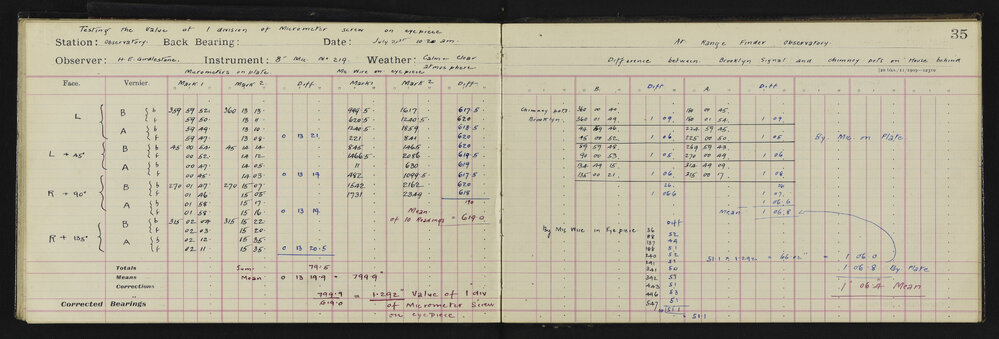 Testing the value of 1 division of Micrometer screw on eyepiece
Station: Observatory. Back Bearing: Date: July 21st 10 20 am.
Observer: H.E. Girdlestone. Instrument: 8" Mic No 219. Weather: Calm & Clear atmosphere
Micrometers on plate. Mic Wire on eyepiece
Face. Vernier. Mark 1 Mark 2 Mark 1 Mark 2 Diff.
L B b 359 59 52. 360 13 13. 999.5 1617 617.5
f 59 50. 13 11. 620.5 1240.5 620
A b 59 49. 13 10. 1240.5 1859 618.5
f 59 47. 13 08. 0 13 21. 221 841 620
L + 45° B b 45 00 54. 45 14 14. 845 1465 620
f 00 52. 14 12. 1466.5 2086 619.5
A b 00 47. 14 05. 11 630 619
f 00 45. 14 03. 0 13 19 482 1099.5 617.5
R + 90° B b 270 01 47. 270 15 07. 1542 2162 620
f 01 46 15 05. 1731 2349 618
A b 01 58. 15 17. 190
f 01 58. 15 16. 0 13 19. Mean of 10 Readings = 619.0
R + 135° B b 315 02 04 315 15 22.
f 02 03. 15 20.
A b 02 12 15 35.
f 02 11 15 35. 0 13 20.5
Totals Sum. 79.5
Means Mean 0 13 19.9 = 799.9"
Corrections
799.9 = 1.292" Value of 1 div
619.0 of Micrometer Screw
Corrected Bearings on eyepiece.
35
At Range Finder Observatory.
Difference between Brooklyn Signal and chimney pots on House behind
B. Diff A. Diff
Chimney pots. 360 00 40. 180 00 45.
Brooklyn. 360 01 49. 1 09. 180 01 54. 1 09.
44 59 46 224 59 45.
45 00 52. 1 06. 225 00 50. 1 05. By Mic on Plate
89 59 48. 269 59 43.
90 00 53. 1 05 270 00 49. 1 06
134 59 15 314 59 09.
135 00 21. 1 06. 315 00 17. 1 08.
26. 28
1 06.5 1 07.
1 06.6
Mean 1 06.8
By Mic Wire in Eyepiece Diff
36
88 52
137 49
188 51
240 52 51.1 x 1.292 = 66.02" = 1 06.0
291 51 1 06.8 By Plate
341 50 1 06.4 Mean
392 51
443 51
496 53
547 51
51.1
= 51.1